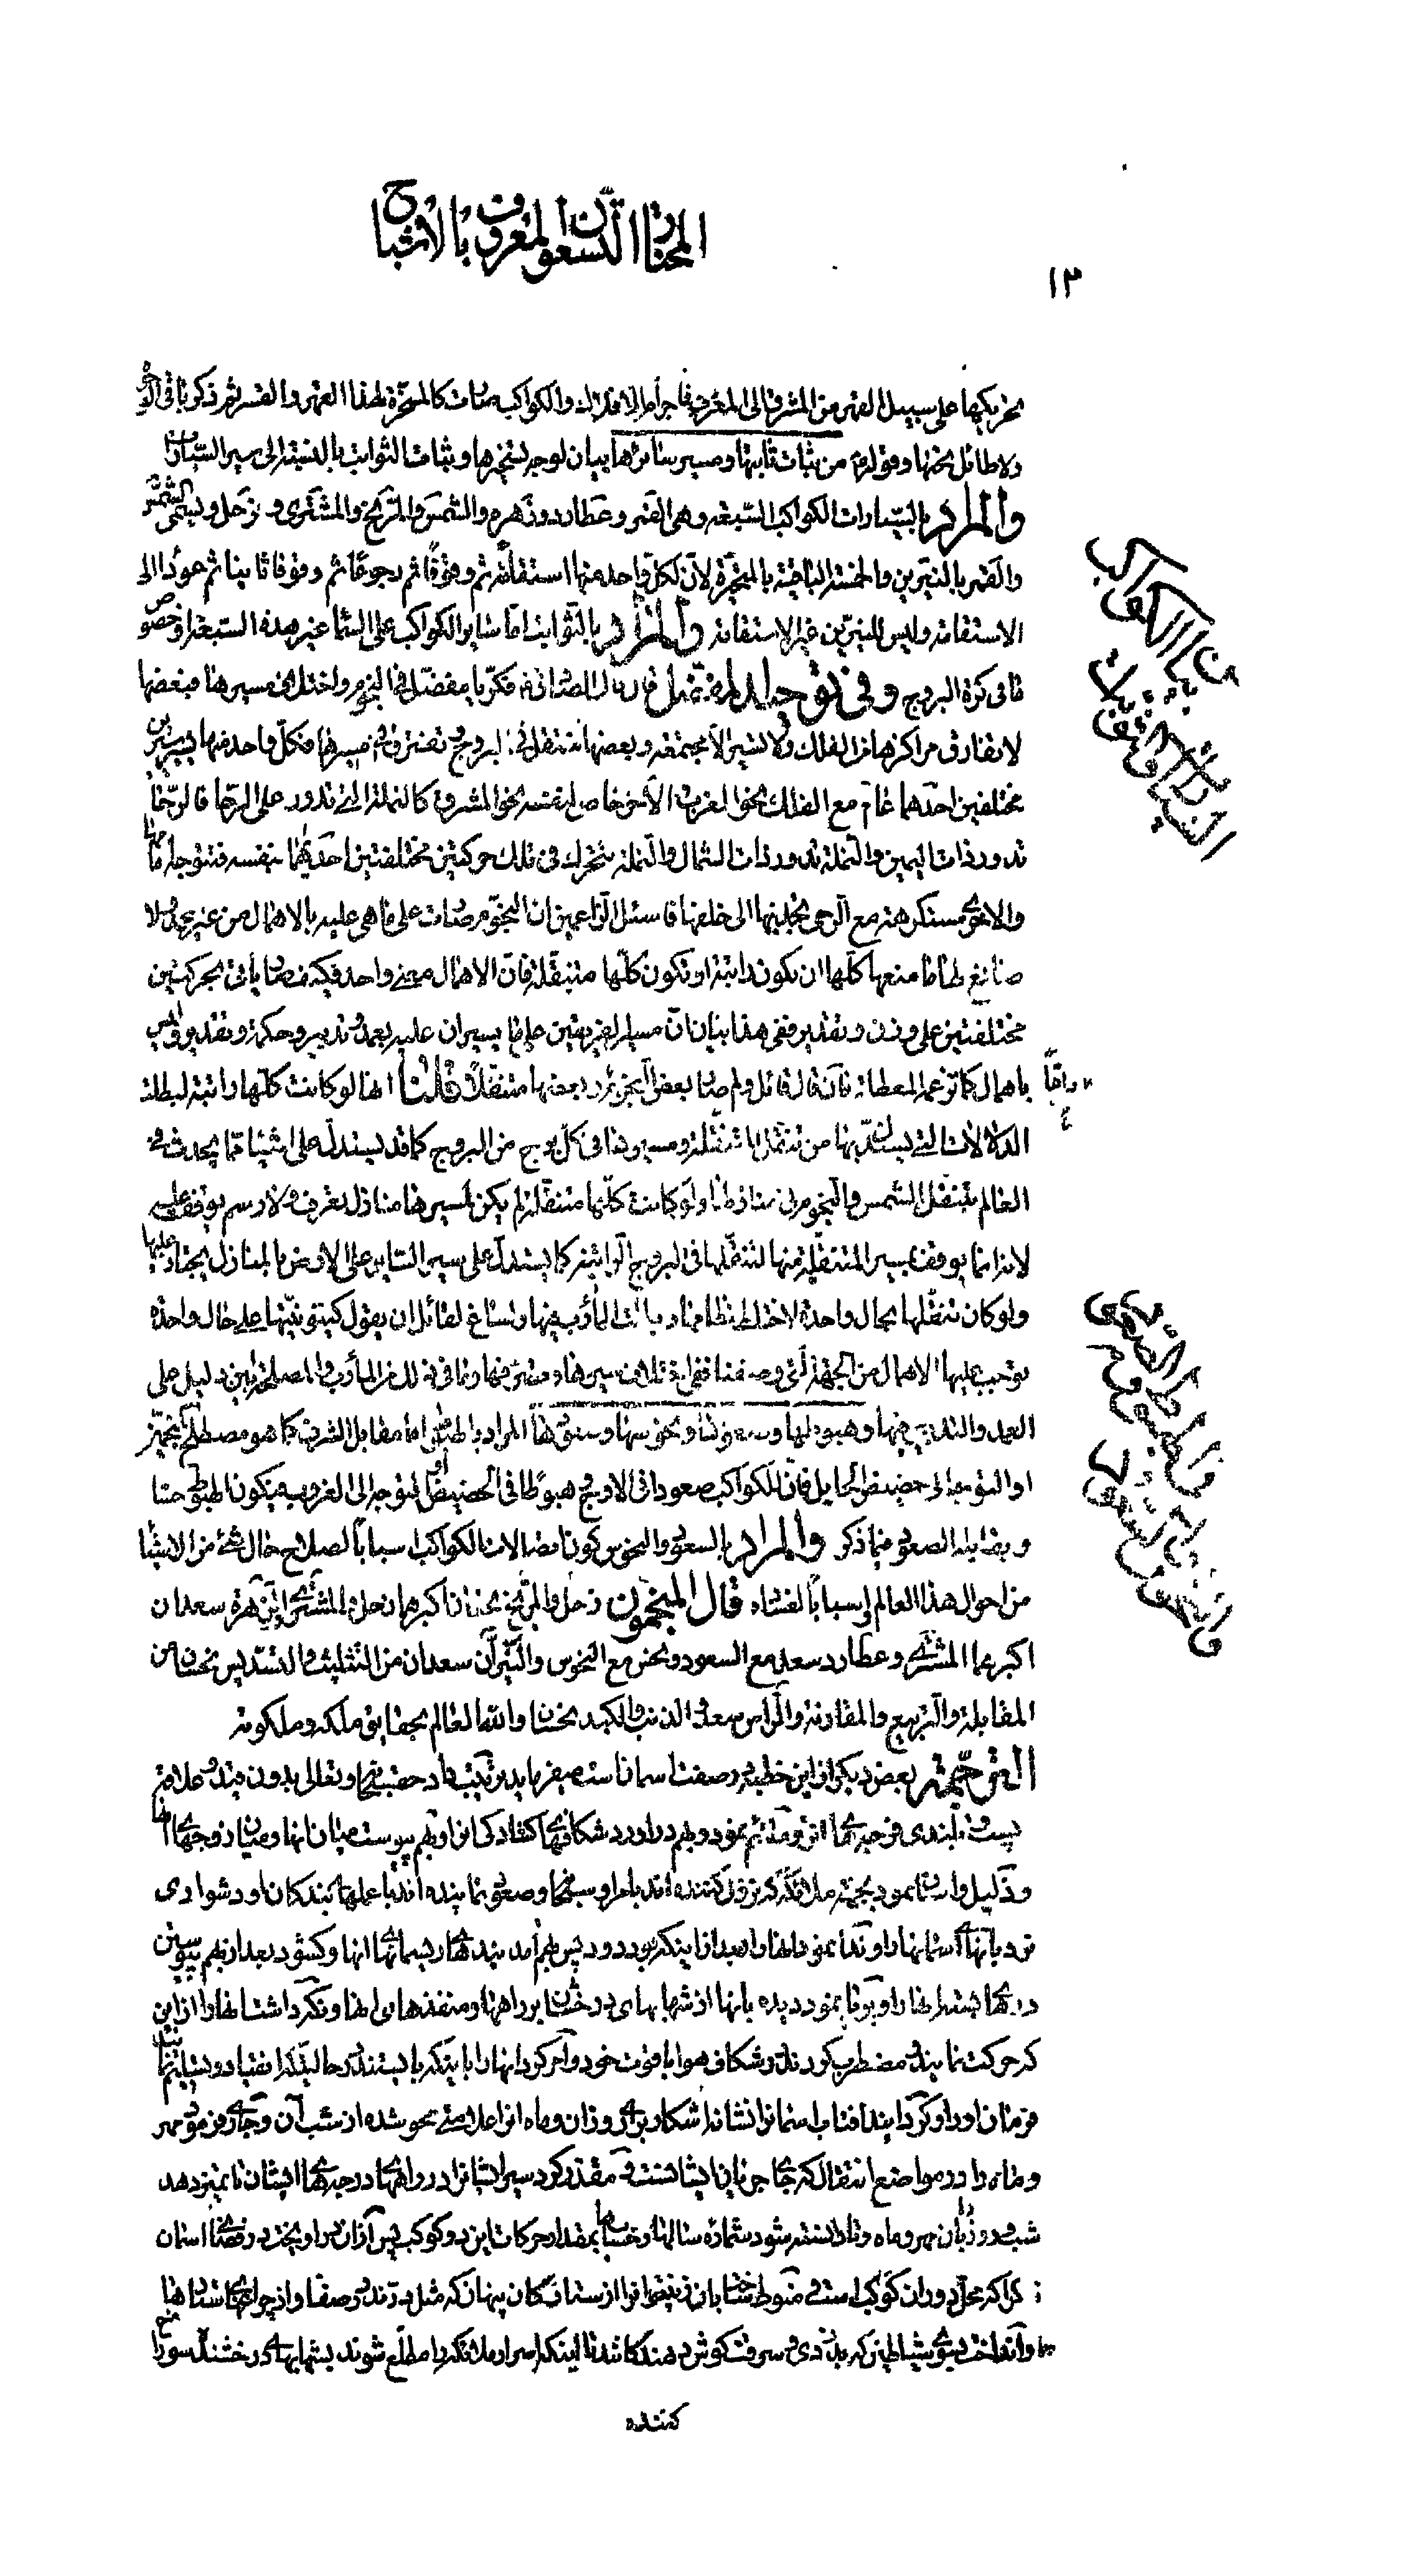 المختار التسعون المعروف بالاشباح
١٣
تحريكها على سبيل القهر من المشرق الى المغرب فاجرام الافلاك والكواكب صارت كالمسخرة لهذا القهر والقسر ثم ذكر باقى الوجوه
ولا طائل تحتها وقوله من ثبات ثابتها ومسير سائرها بيان لوجه تسخيرها وثبات الثوابت بالنسبة الى سير السيارات
والمراد بالسيارات الكواكب السبعة وهى القمر وعطارد وزهره والشمس والمريخ والمشترى وزحل ويسمى الشمس
والقمر بالنيرين والخمسة الباقية بالمتحيرة لان لكل واحد منها استقامة ثم وقوفا ثم رجوعا ثم وقوفا ثانيا ثم عودا الى
الاستقامة وليس للنيرين غير الاستقامة والمراد بالثوابت اما ساير الكواكب على السماء غير هذه السبعة او خصوص
ما فى كرة البروج وفى توحيد المفضل قال الصادق فكر يا مفضل فى النجوم واختلاف مسيرها فبعضها
لا تفارق مراكزها من الفلك ولا تسير الا مجتمعة وبعضها تنتقل فى البروج وتفترق فى مسيرها فكل واحد منها يسير سيرين
مختلفين احدهما عام مع الفلك نحو المغرب والآخر خاص لنفسه نحو المشرق كالنملة التى تدور على الرحا فالرحا
تدور ذات اليمين والنملة تدور ذات الشمال والنملة تتحرك فى تلك حركتين مختلفتين احديهما بنفسه فتتوجه امامها
والاخرى مستكرهة مع الرحى تجذبها الى خلفها فاسئل الزاعمين ان النجوم صارت على ما هى عليه بالاهمال من غير عمد ولا
صانع لها ما منعها كلها ان تكون راتبة او تكون كلها متنقلة فان الاهمال معنى واحد فكيف صار ياتى بحركتين
مختلفتين على وزن وتقدير ففى هذا بيان ان مسير الفريقين على ما يسيران عليه بعمد وتدبير وحكمة وتقدير وليس
باهمال كما تزعم المعطلة فان قال قائل ولم صار بعض النجوم راتبا وبعضها متنقلا قلنا انها لو كانت كلها راتبة لبطلت
الدلالات التى يستدل بها من تنقل المتنقلة ومسيرها فى كل برج من البروج كما قد يستدل على اشياء مما يحدث فى
العالم بتنقل الشمس والنجوم فى منازلها ولو كانت كلها متنقلة لم يكن لمسيرها منازل تعرف ولا رسم يوقف عليه
لانه انما يوقف بمسير المتنقلة منها لتنقلها فى البروج الراتبة كما يستدل على سير الساير على الارض بالمنازل يجتاز عليها
ولو كان تنقلها بحال واحدة لاختلط نظامها وبطلت المآرب فيها ولساغ لقائل ان يقول كينونيتها على حال واحدة
توجب عليها الاهمال من الجهة التى وصفنا ففى اختلاف سيرها وتصرفها وما فى ذلك من المآرب والمصلحة ابين دليل على
العمد والتدبير فيها وهبوطها وصعودها ونحوسها وسعودها المراد بالهبوط اما مقابل الشرف كما هو مصطلح المنجمين
او التوجه الى حضيض الحامل فان للكواكب صعودا فى الاوج وهبوطا فى الحضيض او التوجه الى الغروب فيكون الهبوط حسا
ويقابله الصعود فيما ذكر والمراد بالسعود والنحوس كون اتصالات الكواكب اسبابا لصلاح حال شئ من الاشياء
من احوال هذا العالم او اسبابا لفساده قال المنجمون زحل والمريخ نحسان اكبرهما زحل والمشترى والزهرة سعدان
اكبرهما المشترى وعطارد سعد مع السعود ونحس مع النحوس والنيران سعدان من التثليث والتسديس نحسان من
المقابلة والتربيع والمقارنة والراس سعد والذنب والكيد نحسان والله العالم بحقايق ملكه وملكوته
الترجمة بعض ديكر از اين خطبه در صفت اسمانست ميفرمايد وترتيب داد حقتعالى بدون بند وعلاقه
پست وبلندى فرجه هاى
وذليل واسان نمود بجهة ملائكه كه نزول كننده اند بامر او سبحانه وصعود نماينده اند باعمال بندكان او دشوارى
نردبانهاى آسمانها را وندا نمود انها را بعد از اينكه بود دود پس بهم آمد بندهاى ريسمانهاى انها وكشود بعد از بهم پيوستن
درهاى بسته انها را وبرپا نمود ديده بانها از شهابهاى درخشان بر راهها ومنفذهاى انها ونكه داشت انها را از اين
كه حركت نمايند مضطرب كردند در شكاف هوا با قوت خود وامر كرد انها را باينكه بايستند در حالتيكه انقياد وتسليم نمايند
فرمان او را وكردانيد افتاب اسمان را نشانه اشكار براى روز ان وماه ان را علامتى محو شده از شب آن وجارى فرمود مهر
وماه را در مواضع انتقال كه جاى جريان ايشانست ومقدر كرد سير ايشان را در راههاى درجه هاى ايشان تا تميز دهد
شب وروز بان مهر وماه وتا دانسته شود شماره سالها وحسابها بمقدار حركات اين دو كوكب پس از ان در اويخت در فضاى اسمان
فلكرا كه محل دوران كواكب است ومنوط ساخت بان زينت ان را از ستارگان پنهان كه مثل درند در صفا واز چراغهاى ستارها
وانداخت بسوى شياطين كه بدزدى وسرقت كوش دهندكانند تا اينكه باسرار ملائكه مطلع شوند بشهابهاى درخشنده سوراخ
كننده